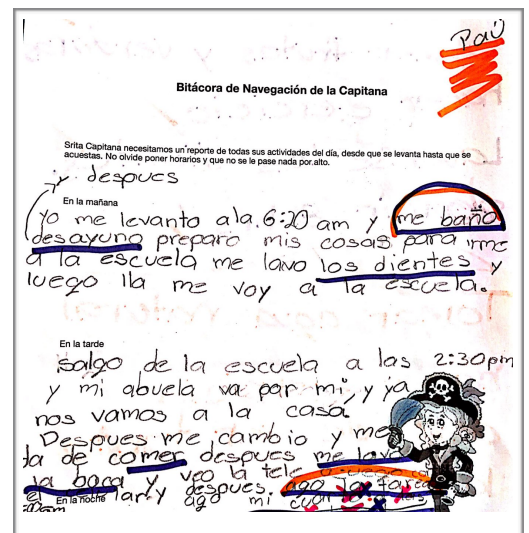 Paú
Bitácora de Navegación de la Capitana
Srita Capitana necesitamos un reporte de todas sus actividades del día, desde que se levanta hasta que se
acuestas. No olvide poner horarios y que no se le pase nada por alto.
y despues
En la mañana
yo me levanto ala 6:20 am y me baño
desayuno preparo mis cosas para irme
a la escuela me lavo los dientes y
luego lla me voy a la escuela.
En la tarde
salgo de la escuela a las 2:30pm
y mi abuela va por mi, y ya
nos vamos a la casa
Despues me cambio y me
da de comer despues me lavo
la boca y veo la tele
despues, ago la tarea
En la noche
ago mi